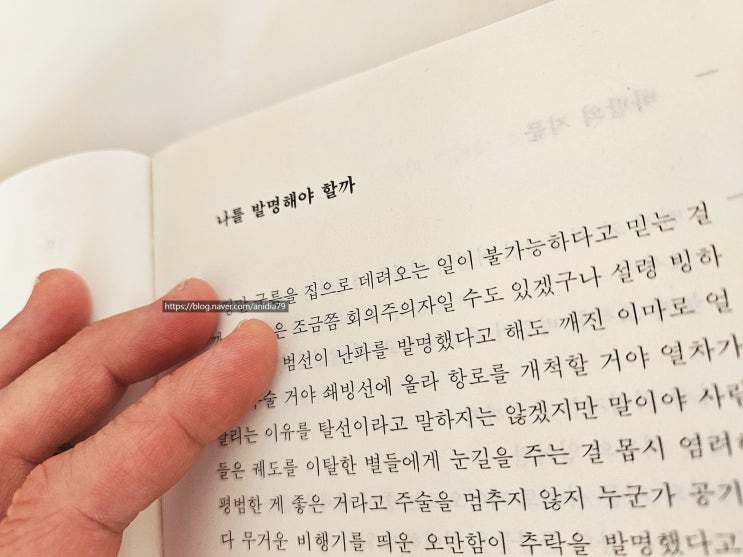 나를 발명해야 할까
구름을 집으로 데려오는 일이 불가능하다고 믿는 걸
은 조금쯤 회의주의자일 수도 있겠구나 설령 빙하
범선이 난파를 발명했다고 해도 깨진 이마로 얼
거야 쇄빙선에 올라 항로를 개척할 거야 열차가
달리는 이유를 탈선이라고 말하지는 않겠지만 말이야 사람
들은 궤도를 이탈한 별들에게 눈길을 주는 걸 몹시 염려
평범한 게 좋은 거라고 주술을 멈추지 않지 누군가 공기
다 무거운 비행기를 띄운 오만함이 추락을 발명했다고
https://blog.naver.com/anidia79